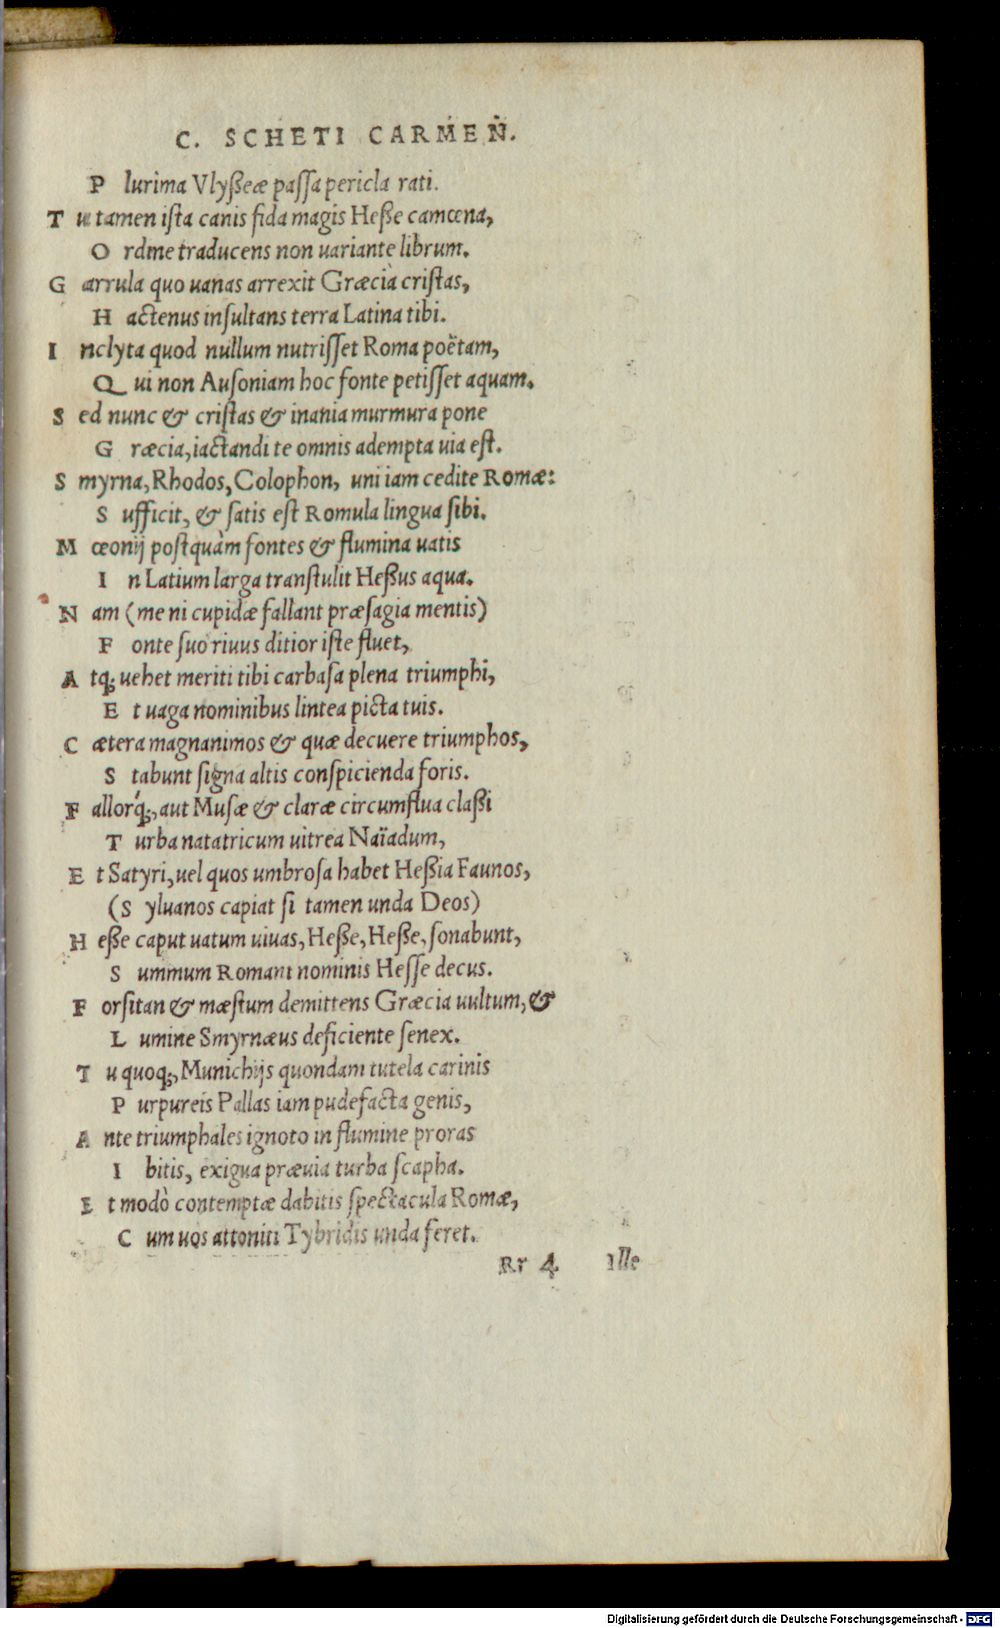 C. SCHETI CARMEN.
P lurima Vlyßeæ paſſa pericla rati.
T u tamen iſta canis fida magis Heße camœna,
O rdine traducens non uariante librum.
G arrula quo uanas arrexit Græcia criſtas,
H actenus inſultans terra Latina tibi.
I nclyta quod nullum nutriſſet Roma poëtam,
Q ui non Auſoniam hoc fonte petiſſet aquam.
S ed nunc & criſtas & inania murmura pone
G ræcia, iactandi te omnis adempta uia eſt.
S myrna, Rhodos, Colophon, uni iam cedite Romæ:
S ufficit, & ſatis eſt Romula lingua ſibi.
M œonij poſtquàm fontes & flumina uatis
I n Latium larga tranſtulit Heßus aqua.
N am (me ni cupidæ fallant præſagia mentis)
F onte ſuo riuus ditior iſte fluet,
A tq; uehet meriti tibi carbaſa plena triumphi,
E t uaga nominibus lintea picta tuis.
C ætera magnanimos & quæ decuere triumphos,
S tabunt ſigna altis conſpicienda foris.
F allorq́;, aut Muſæ & claræ circumflua claßi
T urba natatricum uitrea Naïadum,
E t Satyri, uel quos umbroſa habet Heßia Faunos,
(S yluanos capiat ſi tamen unda Deos)
H eße caput uatum uiuas, Heße, Heße, ſonabunt,
S ummum Romani nominis Heſſe decus.
F orſitan & mæſtum demittens Græcia uultum, &
L umine Smyrnæus deficiente ſenex.
T u quoq;, Munichijs quondam tutela carinis
P urpureis Pallas iam pudefacta genis,
A nte triumphales ignoto in flumine proras
I bitis, exigua præuia turba ſcapha.
E t modò contemptæ dabitis ſpectacula Romæ,
C um uos attoniti Tybridis unda feret.
Rr 4 Ille
Digitalisierung gefördert durch die Deutsche Forschungsgemeinschaft - DFG